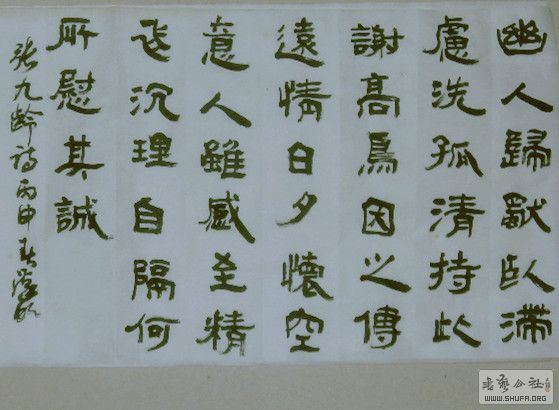 幽人歸獸臥滯
慮洗孤清持此
謝高鳥因之傳
遠情日夕懷空
意人雖感至精
飞沉理自隔何
所慰其誠
张九齡詩丙申春
書藝公社
WWW.SHUFA.ORG